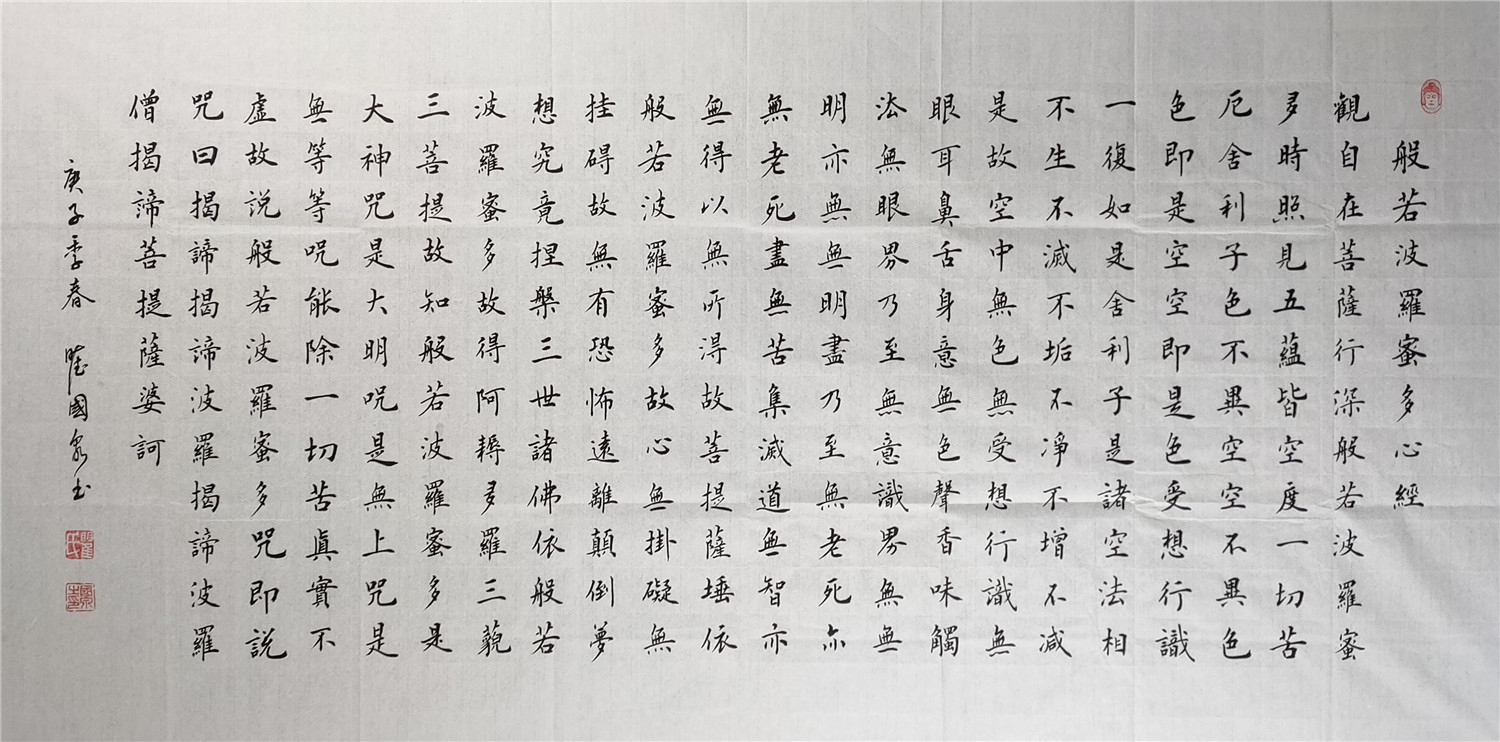 般若波羅蜜多心經
觀自在菩薩行深般若波羅蜜
多時照見五蘊皆空度一切苦
厄舍利子色不異空空不異色
色即是空空即是色受想行識
一復如是舍利子是諸空法相
不生不滅不垢不淨不增不減
是故空中無色無受想行識無
眼耳鼻舌身意無色聲香味觸
法無眼界乃至無意識界無無
明亦無無明盡乃至無老死亦
無老死盡無苦集滅道無智亦
無得以無所得故菩提薩埵依
般若波羅蜜多故心無掛礙無
挂碍故無有恐怖遠離顛倒夢
想究竟捏槃三世諸佛依般若
波羅蜜多故得阿耨多羅三藐
三菩提故知般若波羅蜜多是
大神咒是大明咒是無上咒是
無等等咒能除一切苦真實不
虛故説般若波羅蜜多咒即説
咒曰揭諦揭諦波羅揭諦波羅
僧揭諦菩提薩婆訶
庚子季春 國泉书